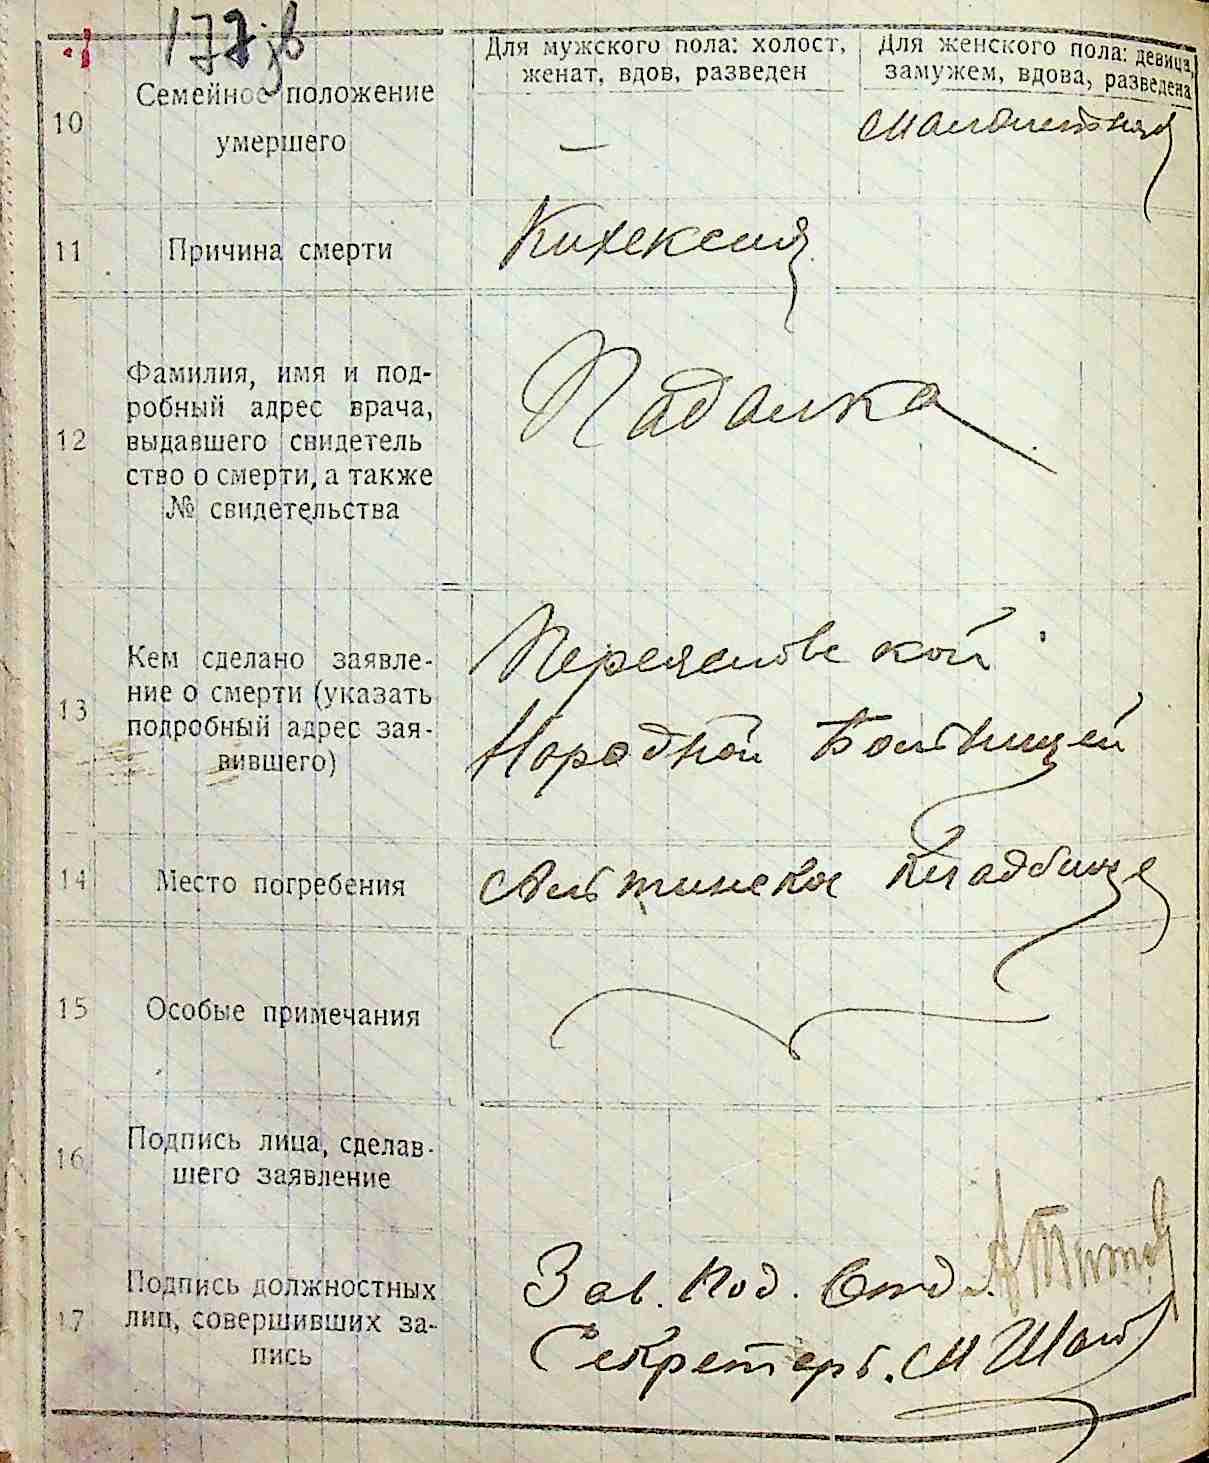 177 зв
Для мужского пола: холост,
женат, вдов, разведен
Для женского пола: девица,
замужем, вдова, разведена
10
Семейное положение
умершего
—
Малолетняя
11
Причина смерти
Кихексия
12
Фамилия, имя и под-
робный адрес врача,
выдавшего свидетель
ство о смерти, а также
№ свидетельства
Падалка
13
Кем сделано заявле-
ние о смерти (указать
подробный адрес зая-
вившего)
Переясловской
Народной Больницей
14
Место погребения
Альтинское Кладбище
15
Особые примечания
16
Подпись лица, сделав-
шего заявление
17
Подпись должностных
лиц, совершивших за-
пись
Зав. Под. Отд.
Секретарь. М